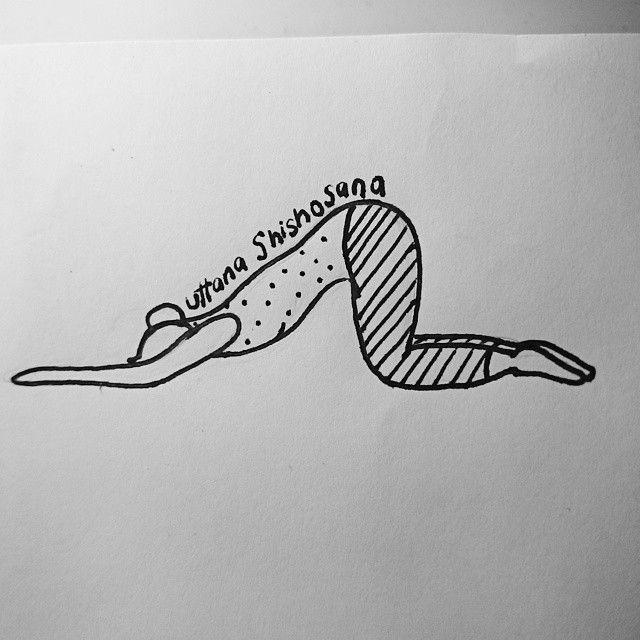 uttana Shishosana